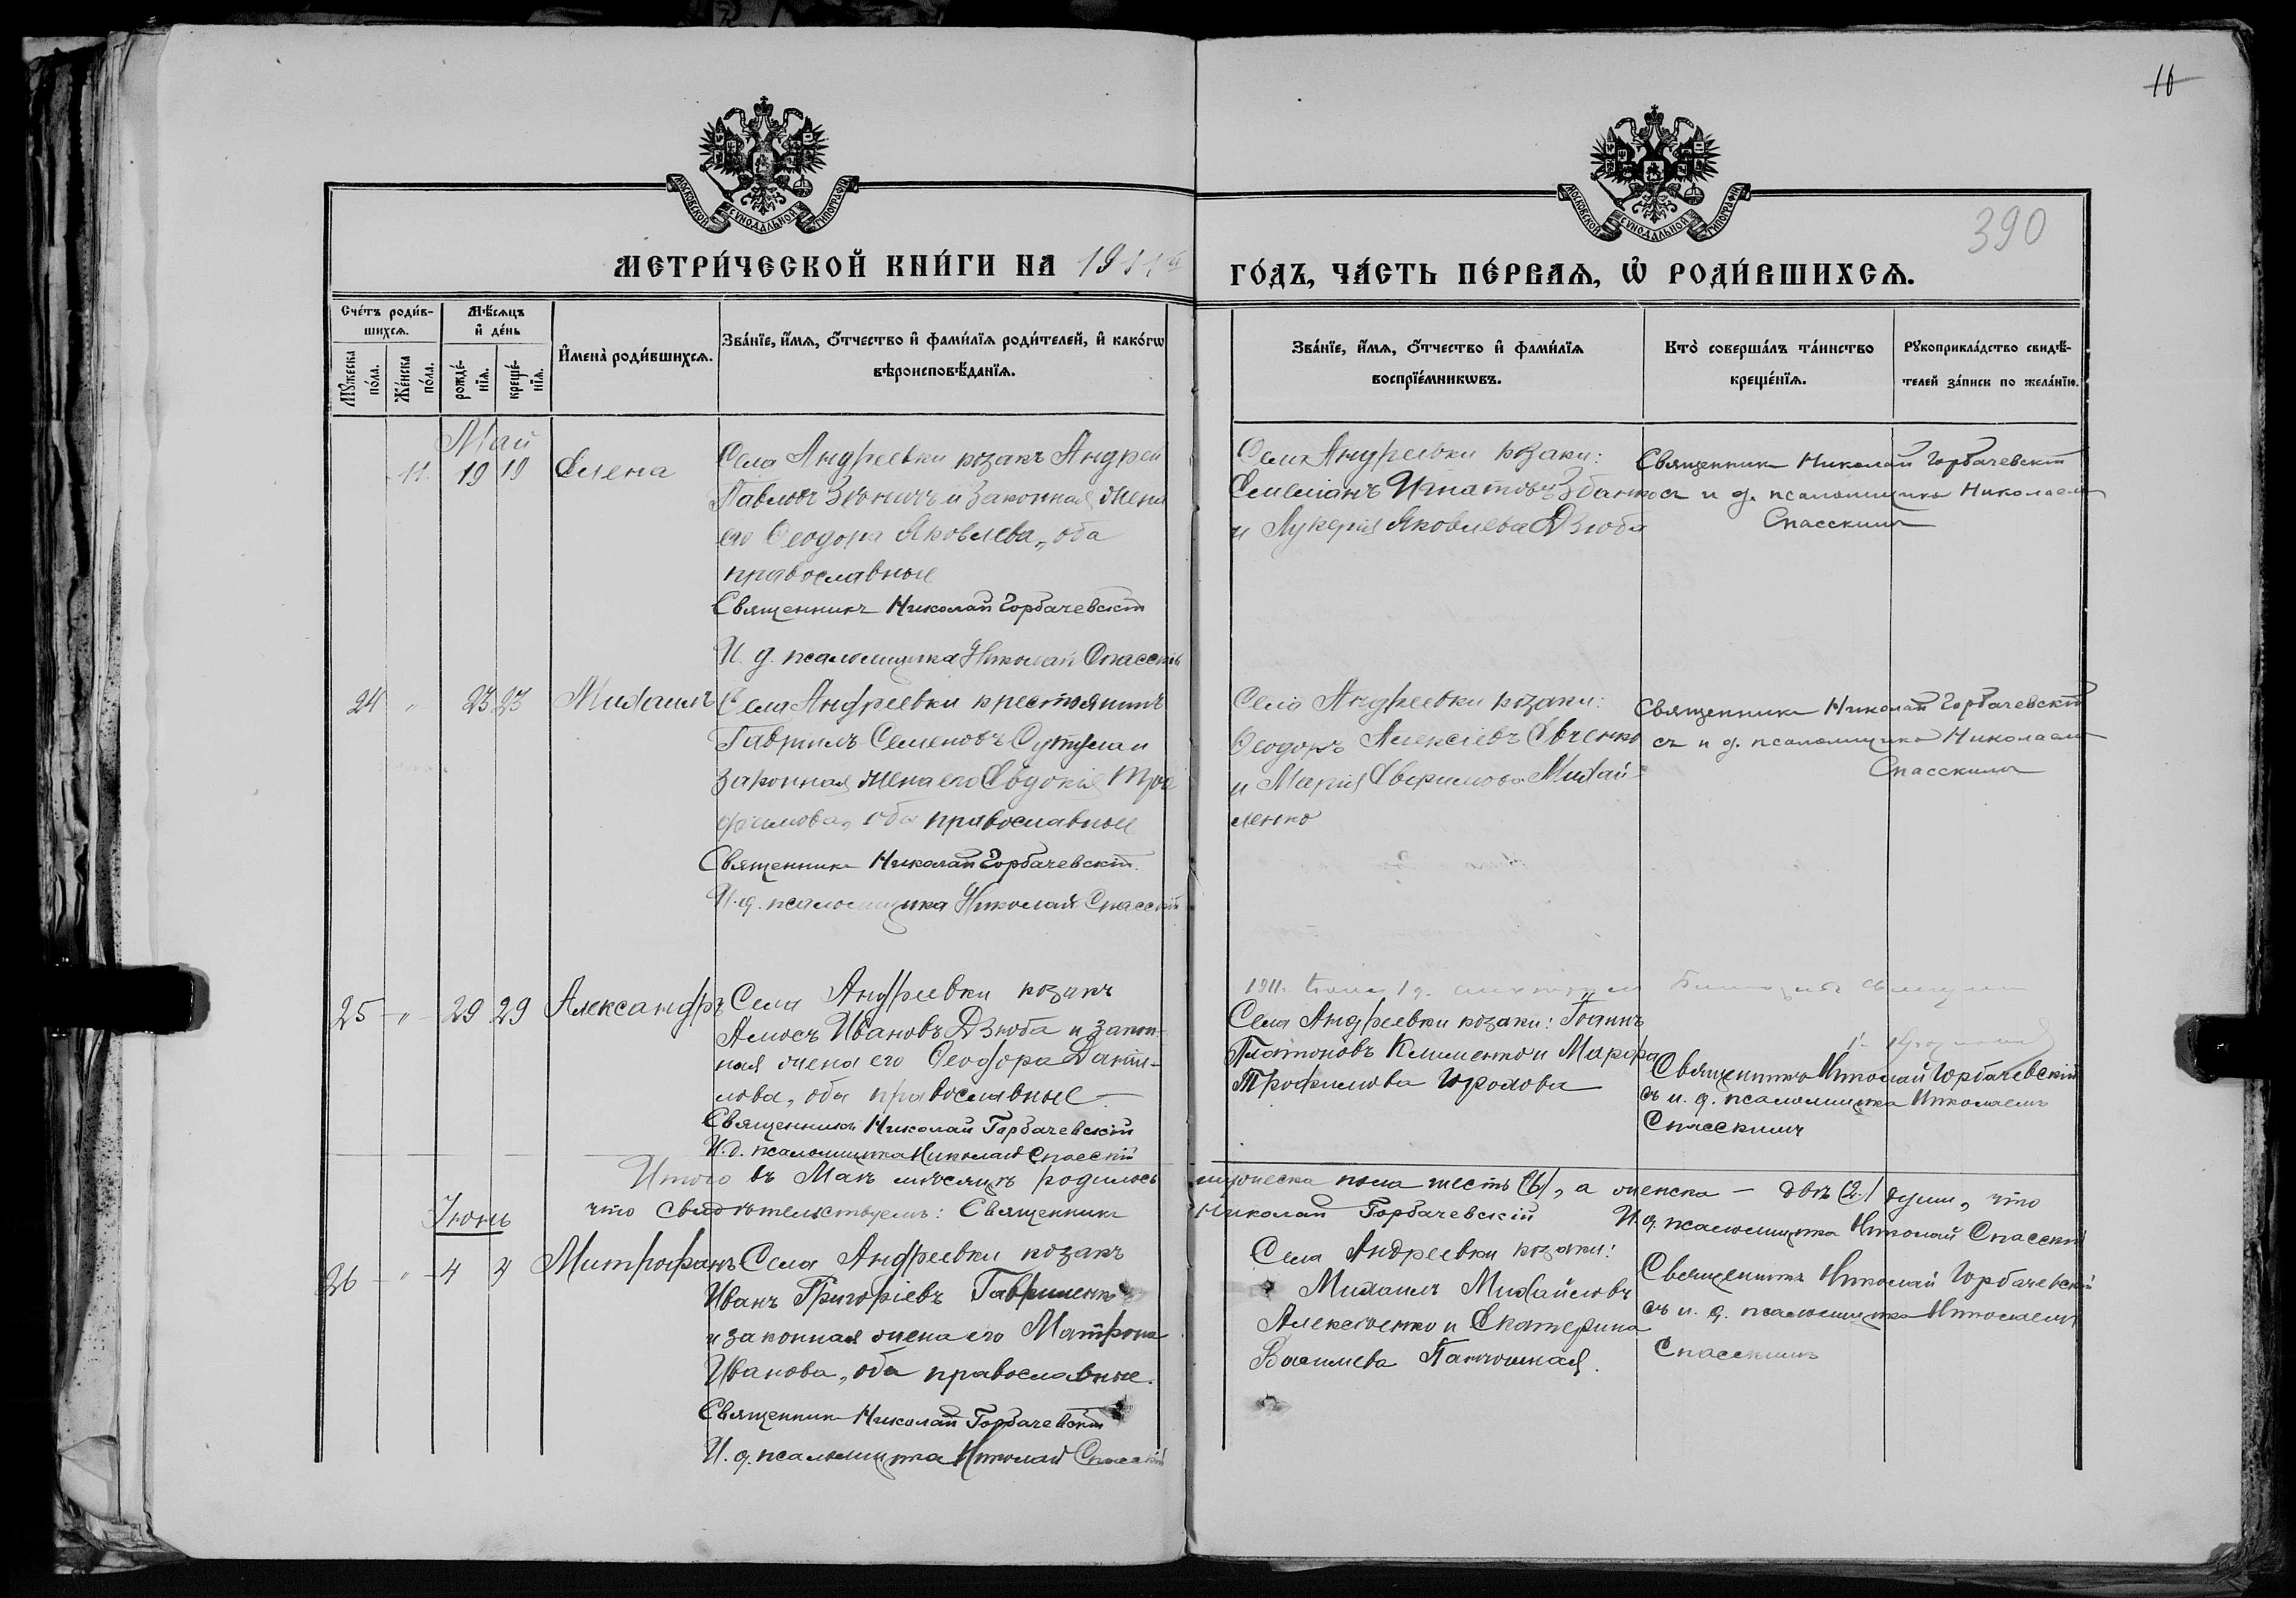 10
390
МОСКОВСКОЙ СѴНОДАЛЬНОЙ ТИПОГРАФІИ
МОСКОВСКОЙ СѴНОДАЛЬНОЙ ТИПОГРАФІИ
МЕТРИ́ЧЕСКОЙ КНИ́ГИ НА 1911й
ГО́ДЪ, ЧА́СТЬ ПЕ́РВАѦ, Ѡ҆ РОДИ́ВШИХСѦ.
Сче́тъ роди́в-
шихсѧ.
Мꙋ́жеска по́ла.
Же́нска по́ла.
Мѣ́сѧцъ
и҆ де́нь
рожде́-нїѧ.
креще́-нїѧ.
И҆мена̀ роди́вшихсѧ.
Зва́нїе, и҆́мѧ, ѻ҆́тчество и҆ фами́лїѧ роди́телей, и҆ како́гѡ
вѣроисповѣ́данїѧ.
Зва́нїе, и҆́мѧ, ѻ҆́тчество и҆ фами́лїѧ
воспрїе́мникѡвъ.
Кто̀ соверша́лъ та́инство
креще́нїѧ.
Рꙋкоприкла́дство свидѣ́-
телей за́писи по жела́нїю.
Май
11. 19 19 Елена
Села Андреевки козакъ Андрей
Павловъ и законная жена
его Ѳеодора Яковлева, оба
православные
Священникъ Николай Горбачевскій
И. д. псаломщика Николай Спасскій
Села Андреевки козаки:
Емеліанъ Игнатовъ Збанко
и Лукерія Яковлева Дзюба
Священникъ Николай Горбачевскій
съ и д. псаломщика Николаемъ
Спасскимъ
24 " 23 23 Михаилъ
Села Андреевки крестьянинъ
Гавриилъ Семеновъ и
законная жена его Евдокія Тро-
фимова, оба православные
Священникъ Николай Горбачевскій.
И. д. псаломщика Николай Спасскій
Села Андреевки козаки:
Ѳеодоръ Алексіевъ Евченко
и Марія Аверкіова Михай-
ленко
Священникъ Николай Горбачевскій
съ и д. псаломщика Николаемъ
Спасскимъ
25 " 29 29 Александръ
Села Андреевки козакъ
Амосъ Ивановъ Дзюба и закон-
ная жена его Ѳеодора Даніи-
лова, оба православные
Священникъ Николай Горбачевскій
И. д. псаломщика Николай Спасскій
1911
Села Андреевки козаки: Іоаннъ
Платоновъ Клименко и Марѳа
Трофимова
Священникъ Николай Горбачевскій
съ и. д. псаломщика Николаемъ
Спасскимъ
Итого въ Маѣ мѣсяцѣ родилось мужеска пола шесть (6), а женска – двѣ (2) души, что
что свидѣтельствуемъ: Священникъ Николай Горбачевскій И. д. псаломщика Николай Спасскій
Іюнь
26 " 4 4 Митрофанъ
Села Андреевки козакъ
Иванъ Григоріевъ Гавриленко
и законная жена его Матрона
Иванова, оба православные.
Священникъ Николай Горбачевскій
И. д. псаломщика Николай Спасскій
Села Андреевки козаки:
Михаилъ Михайловъ
Алексѣенко и Екатерина
Васильева
Священникъ Николай Горбачевскій
съ и. д. псаломщика Николаемъ
Спасскимъ